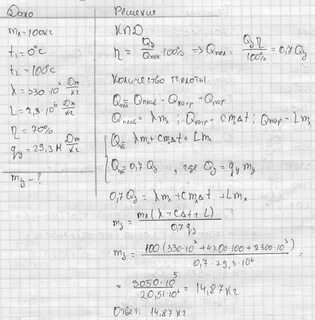 Дано
m₁=100кг
t₁=0°C
t₂=100°C
λ=330·10³ Дж/кг
L=2,3·10⁶ Дж/кг
η=70%
q𝑦=29,3М Дж/кг
m𝑦-?
Решение
КПД
η = Q𝑦/Qпол·100% => Qпол = Q𝑦η/100% = 0,7Q𝑦
Количество теплоты
Qплав = λm; Qнагр = cmΔt; Qпар = Lm
Q = λm+cmΔt+Lm
Q=0,7Q𝑦, где Q𝑦=q𝑦m𝑦
0,7Q𝑦=λm+cmΔt+Lm
m𝑦 = m(λ+cΔt+L)/0,7q𝑦
m𝑦 = 100(330·10³+4200·100+2300·10³)/0,7·29,3·10⁶ =
= 3050·10⁵/20,51·10⁶ = 14,87кг
Ответ: 14,87кг